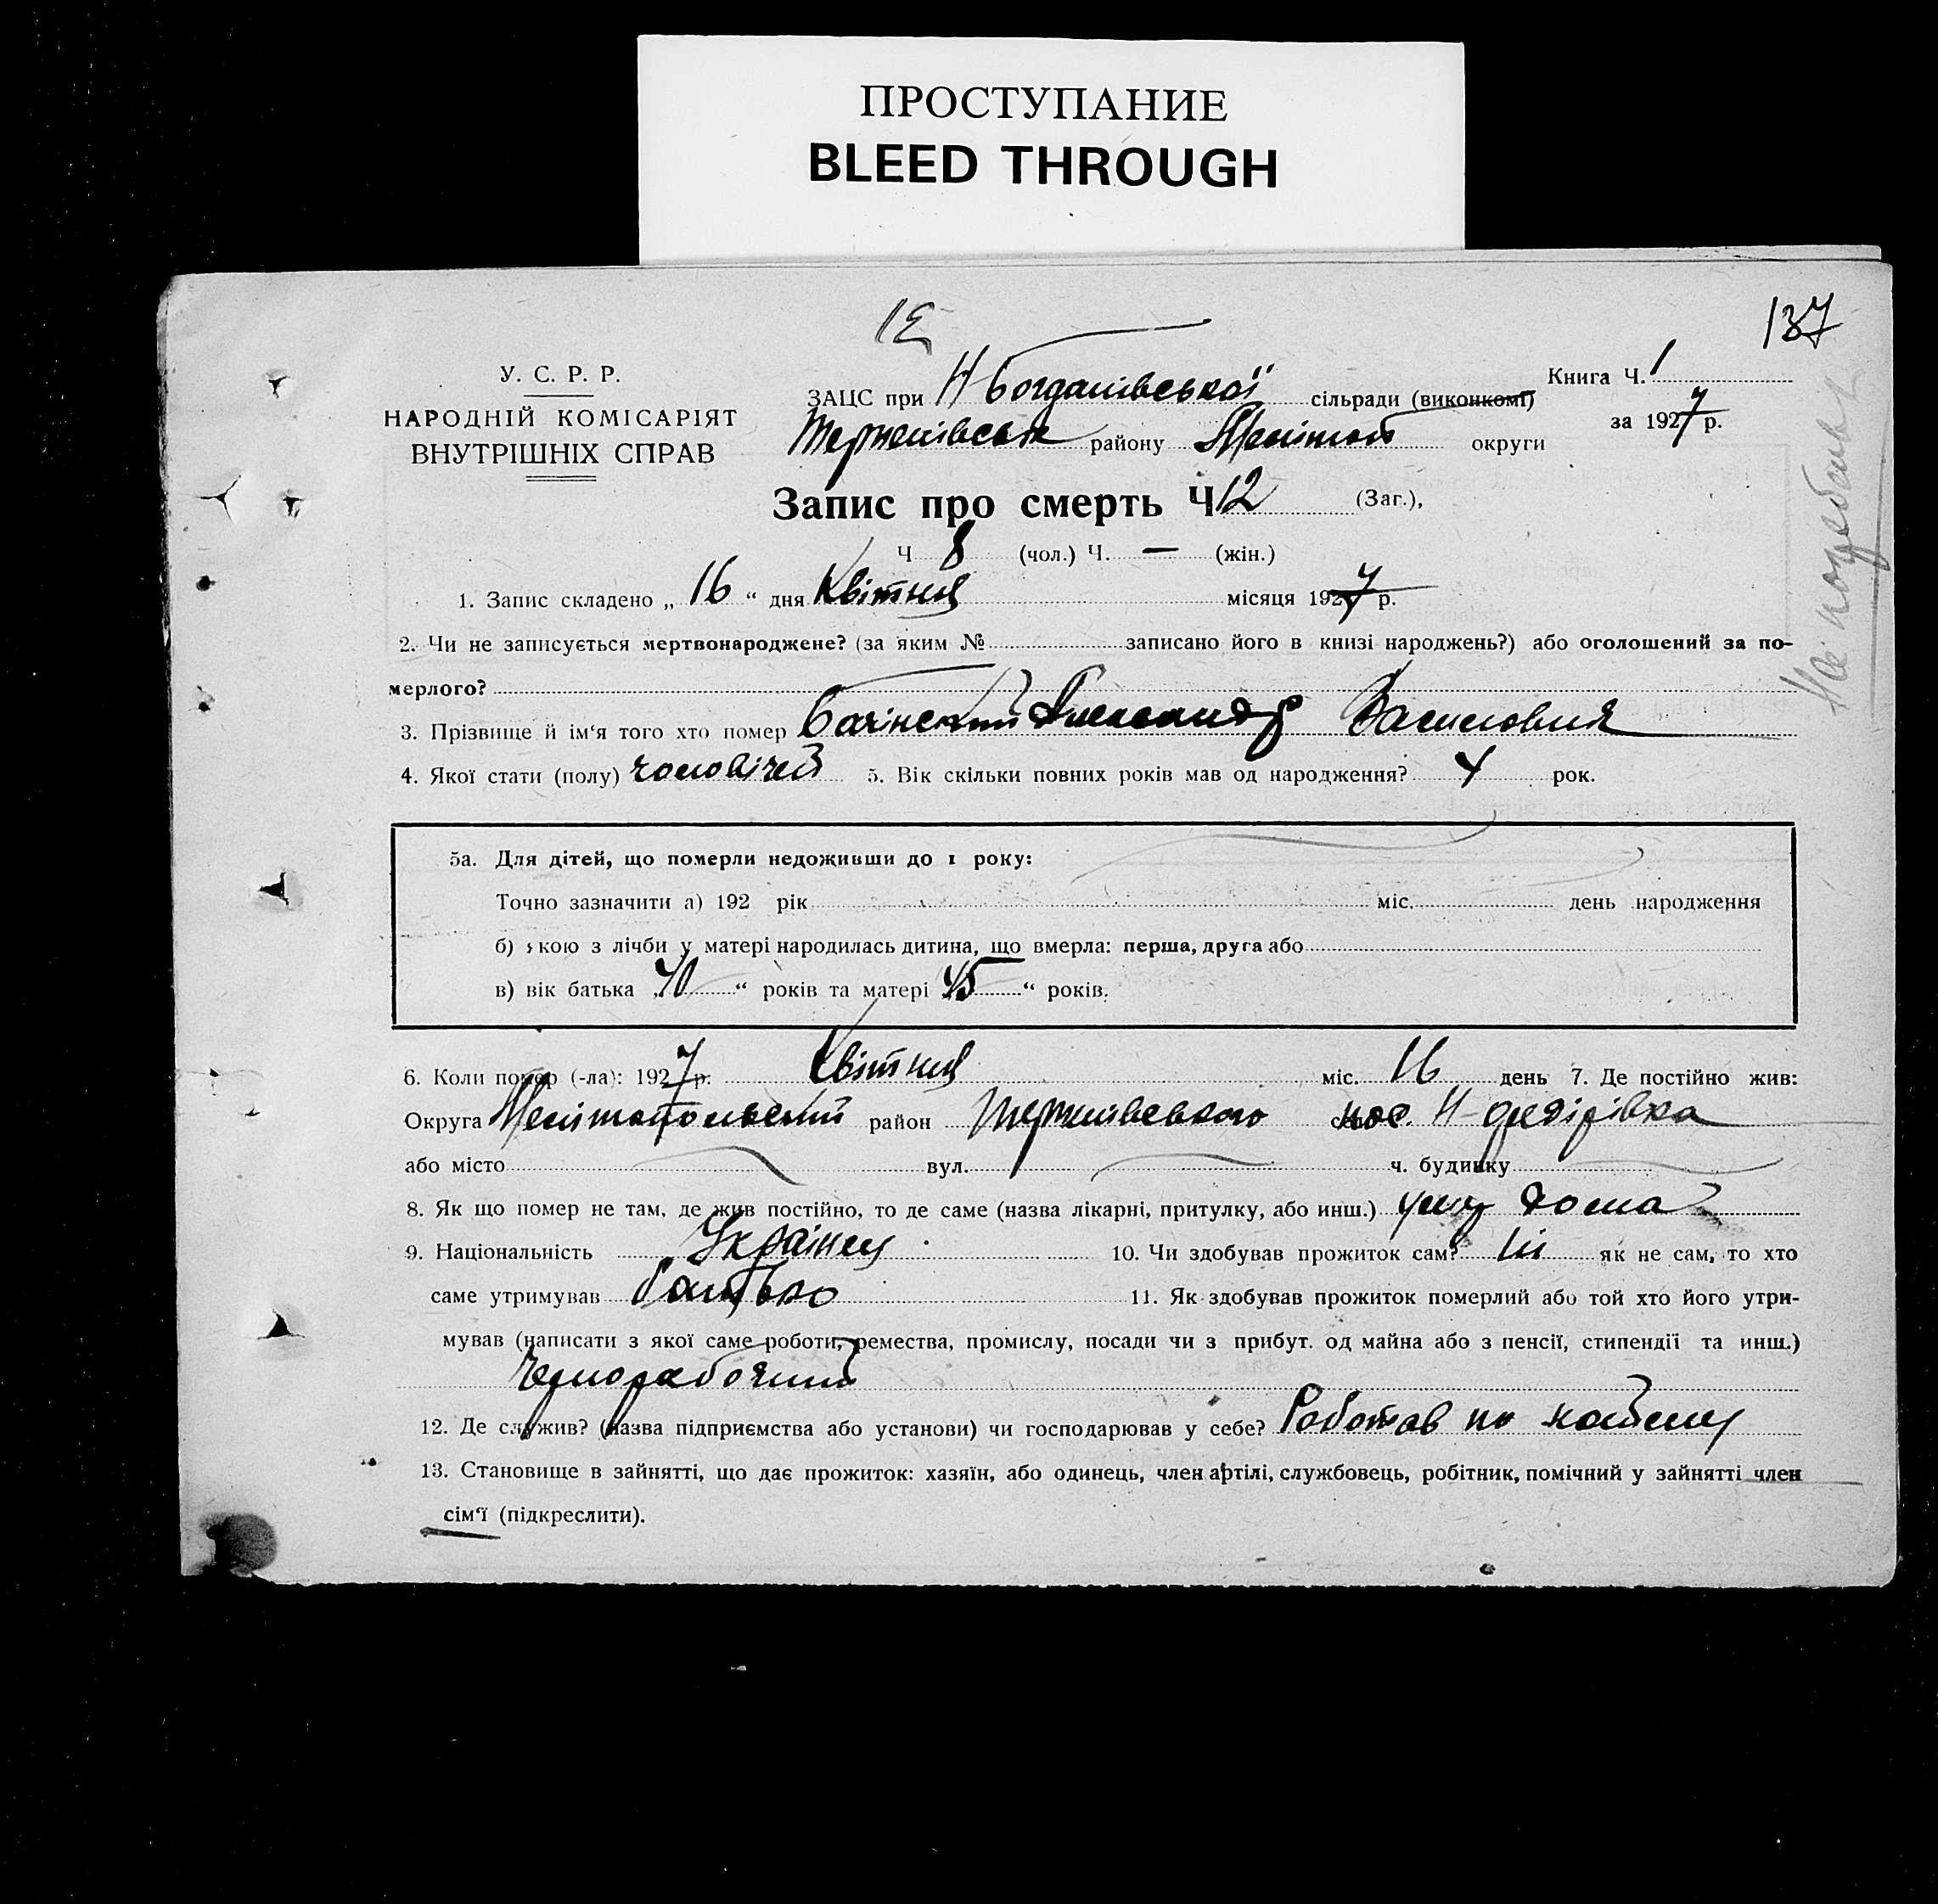 ПРОСТУПАНИЕ
BLEED THROUGH
137
У. С. Р. Р.
НАРОДНІЙ КОМІСАРІЯТ
ВНУТРІШНІХ СПРАВ
ЗАЦС при Н Богданівської сільради (виконкомі)
Книга Ч. 1
за 1927 р.
району Меліт округи
Запис про смерть Ч 12 (Заг.),
Ч 8 (чол.) Ч. — (жін.)
1. Запис складено „ 16 “ дня Квітня місяця 1927 р.
2. Чи не записується мертвонароджене? (за яким № записано його в книзі народжень?) або оголошений за по-
мерлого?
3. Прізвище й ім‘я того хто помер Бачінский Александр
4. Якої стати (полу) чоловічей 5. Вік скільки повних років мав од народження? 4 рок.
5а. Для дітей, що померли недоживши до 1 року:
Точно зазначити а) 192 рік міс. день народження
б) якою з лічби у матері народилась дитина, що вмерла: перша, друга або
в) вік батька „ “ років та матері 45 “ років.
6. Коли помер (-ла): 1927 р. Квітня міс. 16 день 7. Де постійно жив:
Округа Мелітопольский район пос. Н-
або місто вул. ч. будинку
8. Як що помер не там, де жив постійно, то де саме (назва лікарні, притулку, або инш.) дома
9. Національність Українец 10. Чи здобував прожиток сам? Ні як не сам, то хто
саме утримував батько 11. Як здобував прожиток померлий або той хто його утри-
мував (написати з якої саме роботи, ремества, промислу, посади чи з прибут. од майна або з пенсії, стипендії та инш.)
Чернорабочий
12. Де служив? (назва підприємства або установи) чи господарював у себе? Работав по найму
13. Становище в зайнятті, що дає прожиток: хазяїн, або одинець, член артілі, службовець, робітник, помічний у зайнятті член
сім‘ї (підкреслити).